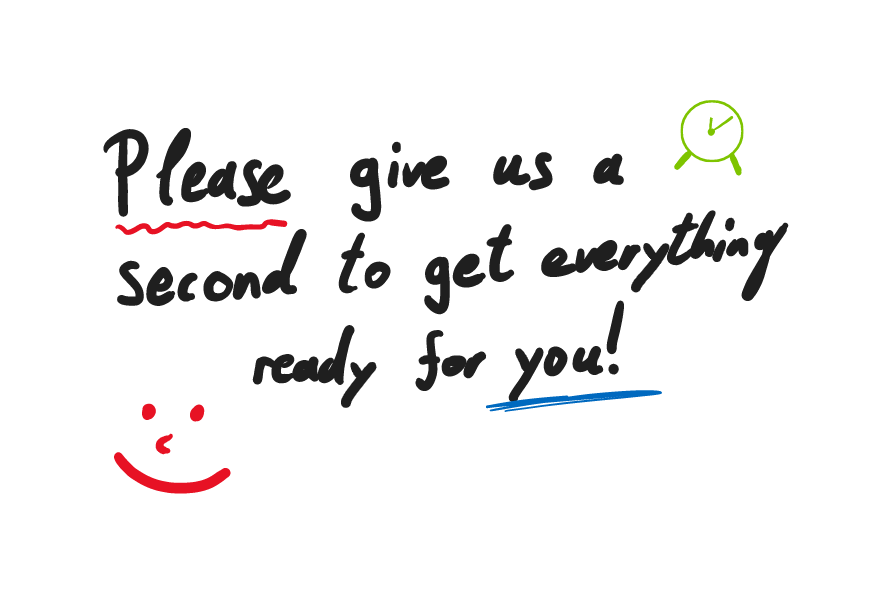 Please give us a
second to get everything
ready for you!